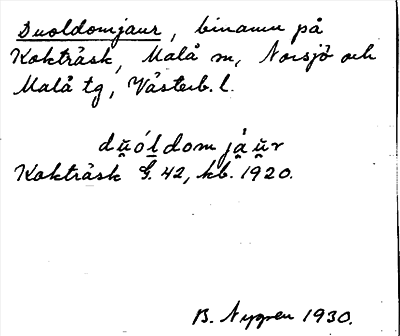 Duoldomjaur, binamn på
Kokträsk, Malå sn, Norsjö och
Malå tg, Västerb. l.
dŭ̯óldom jå̯ŭ̯r
Kokträsk G. 42, kb. 1920.
B. Nygren 1930.